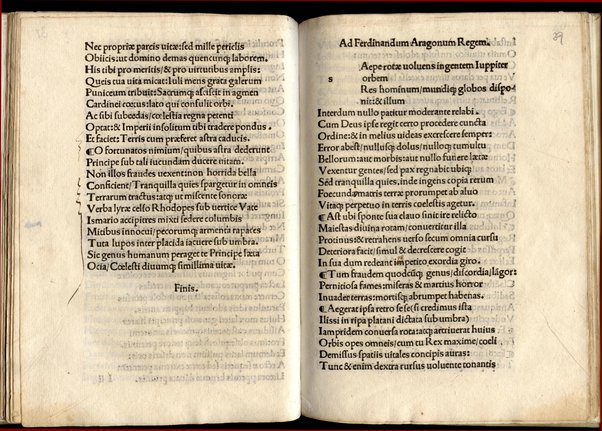 Nec propriæ parcis uitæ: sed mille periclis
Obiicis: ut domino demas quencunq; laborem.
His tibi pro meritis/ & pro uirtutibus amplis:
Queis tua uita micat: Iuli mens grata galerum
Puniceum tribuit: Sacrumq; asciscit in agmen
Cardinei cœtus: lato qui consulit orbi.
Ac sibi subcædas/ cœlestia regna petenti
Optat: & Imperii insolitum tibi tradere pondus.
Et faciet: Terris cum præferet astra caducis.
¶O fortunatos nimium/ quibus astra dederunt
Principe sub tali iucundam ducere uitam.
Non illos fraudes uexent: non horrida bella
Conficient/ Tranquilla quies spargetur in omneis
Terrarum tractus: atq; ut miscente sonoras
Verba lyræ celso Rhodopes sub uertice Vate
Ismario accipitres mixti sedere columbis
Mitibus innocui/ pecorumq; armenta rapaces
Tuta lupos inter placida iacuere sub umbra.
Sic genus humanum peraget te Principe læta
Ocia, Cœlesti diuumq; simillima uitæ.
Finis.
39
Ad Ferdinandum Aragonum Regem.
Aepe rotæ uoluens ingentem Iuppiter
s orbem
Res hominum/ mundiq; globos dispo-
nit: & illum
Interdum nullo patitur moderante relabi.
Cum Deus ipse regit certo procedere cuncta
Ordine: & in melius uideas excrescere semper:
Error abest/ nullusq; dolus/ nullusq; tumultu
Bellorum: aut morbis: aut nullo funere lætæ
Vexentur gentes/ sed pax regnabit ubiq;
Sed tranquilla quies/ inde ingens copia rerum
Foecunda matris terræ prorumpet ab aluo
Vitaq; perpetuo in terris cœlestis agetur.
¶Ast ubi sponte sua clauo sinit ire relicto
Maiestas diuina rotam/ conuertitur illa
Protinus: & retrahens uerso secum omnia cursu
Deteriora facit/ simul & decrescere cogit
In sua dum redeant impetito exordia giro.
¶Tum fraudem quodcūq; genus/ discordia/ lāgor:
Pernitiosa fames: miseras & martius horror
Inuadet terras: mortisq; abrumpet habenas.
¶Aegerat ipsa retro se se (si credimus ista
Ilissi in ripa platani dictata sub umbra)
Iampridem conuersa rota: atq; attriuerat huius
Orbis opes omneis/ cum tu Rex maxime/ coeli
Demissus spatiis uitales concipis auras:
Tunc & enim dextra rursus uoluente tonantis